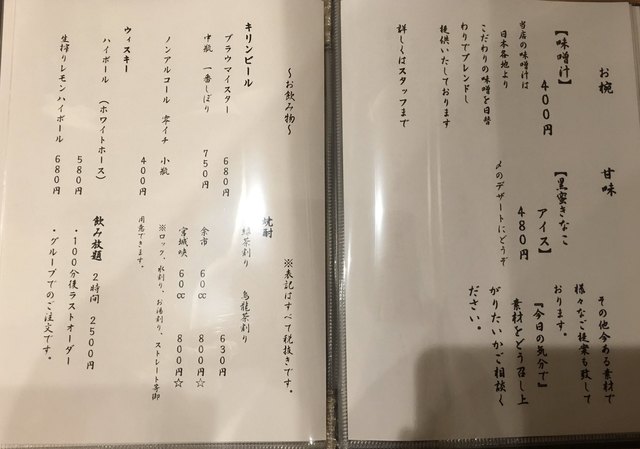 お椀
【味噌汁】
400円
当店の味噌汁は
日本各地より
こだわりの味噌を日替
わりでブレンドし
提供いたしております
詳しくはスタッフまで
甘味
【黒蜜きなこ
アイス】
480円
〆のデザートにどうぞ
その他今ある素材で
様々なご提案も致して
おります。
『今日の気分で』
素材をどう召し上
がりたいかご相談く
ださい。
〜お飲み物〜
※表記はすべて税抜きです。
キリンビール
ブラウマイスター 680円
中瓶 一番しぼり 750円
ノンアルコール 零イチ 小瓶
400円
ウィスキー
ハイボール (ホワイトホース)
580円
生搾りレモンハイボール 680円
焼酎
緑茶割り 烏龍茶割り
630円
余市 60cc 800円☆
宮城峡 60cc 800円☆
※ロック、水割り、お湯割り、ストレート等御
用意できます。
飲み放題 2時間 2500円
・100分後ラストオーダー
・グループでのご注文です。